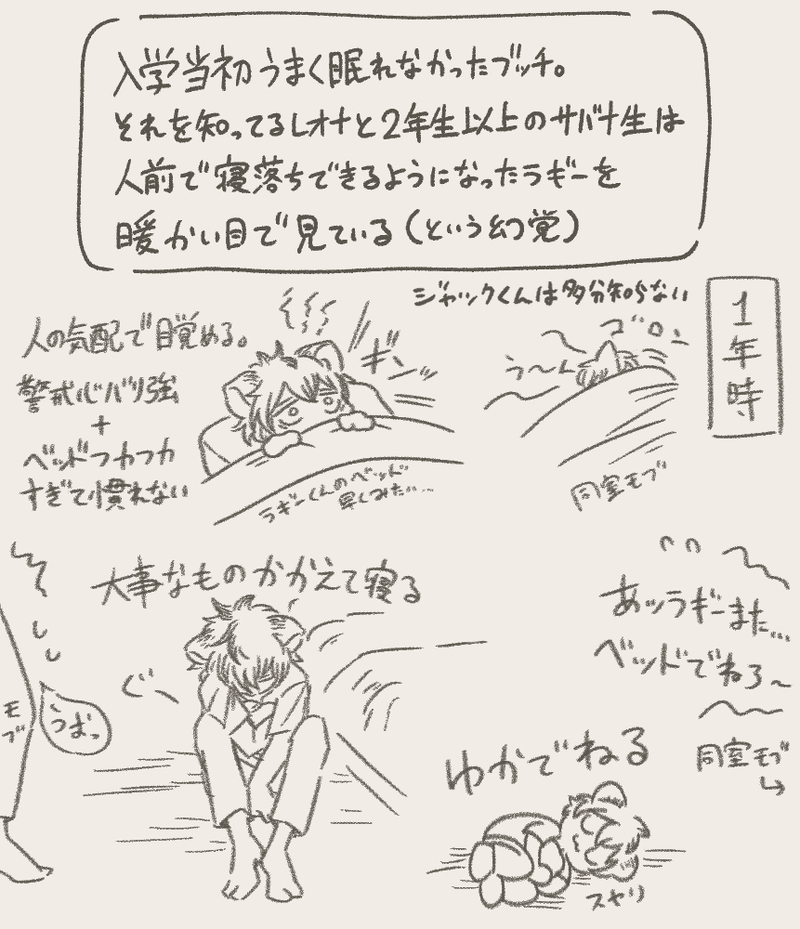 入学当初うまく眠れなかったブッチ。
それを知ってるレオナと2年生以上のサバナ生は
人前で寝落ちできるようになったラギーを
暖かい目で見ている(という幻覚)
ジャックくんは多分知らない
1年時
ゴロン
う〜ん
同室モブ
人の気配で目覚める。
警戒心バリ強
+
ベッドフカフカ
すぎて慣れない
ギン
ラギーくんのベッド
大事なものかかえて寝る
ぐーっ
モブ
うおっ
あッラギーまた…
ベッドでねろ〜
同室モブ
ゆかでねる
スヤリ